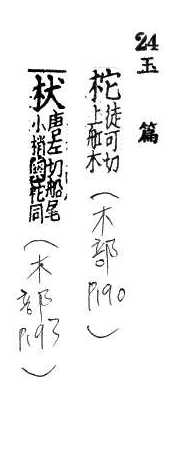 24 玉篇
柁 徒可切
上舡木 (木部 P.190)
杕 唐左切船尾
小梢與柁同 (木部 P.193)